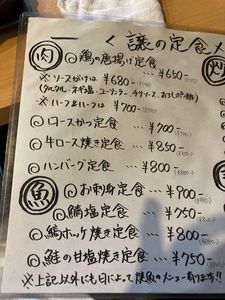 一く譲の定食メ
肉
◎鶏の唐揚げ定食 … ¥650-
※ソースがけは ¥680-
※ハーフ&ハーフは ¥700-
◎ロースかつ定食 … ¥700-
◎牛ロース焼き定食 … ¥850-
◎ハンバーグ定食 … ¥800-
魚
◎お刺身定食 … ¥900-
◎鯖塩定食 … ¥750-
◎縞ホッケ焼き定食 … ¥800-
◎鮭の甘塩焼き定食 … ¥750-
※上記以外にも日によって焼魚のメニュー有ります!!